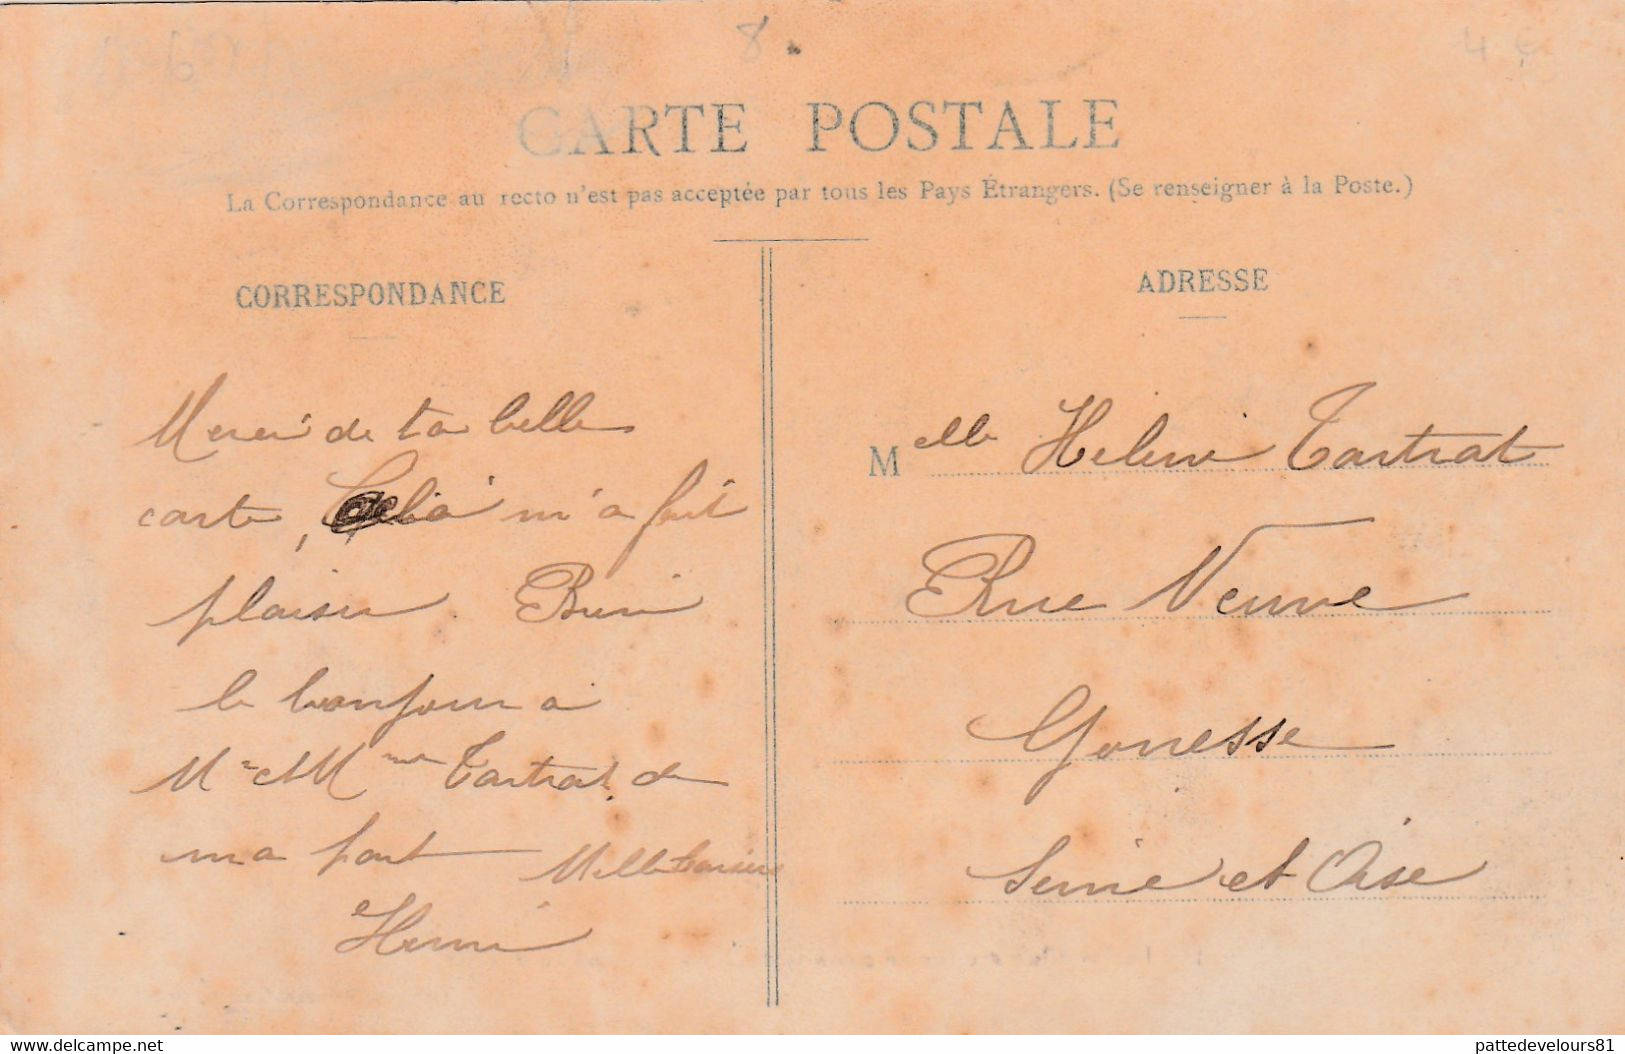 8
4 €
CARTE POSTALE
La Correspondance au recto n'est pas acceptée par tous les Pays Étrangers. (Se renseigner à la Poste.)
CORRESPONDANCE
Merci de ta belle
carte, Cela m'a fait
plaisir. Bien
le bonjour a
Mr et Mme Tartrat de
ma part Mille baisers
Henri
ADRESSE
Melle Helene Tartrat
Rue Neuve
Gonesse
Seine et Oise
www.delcampe.net
pattedevelours81